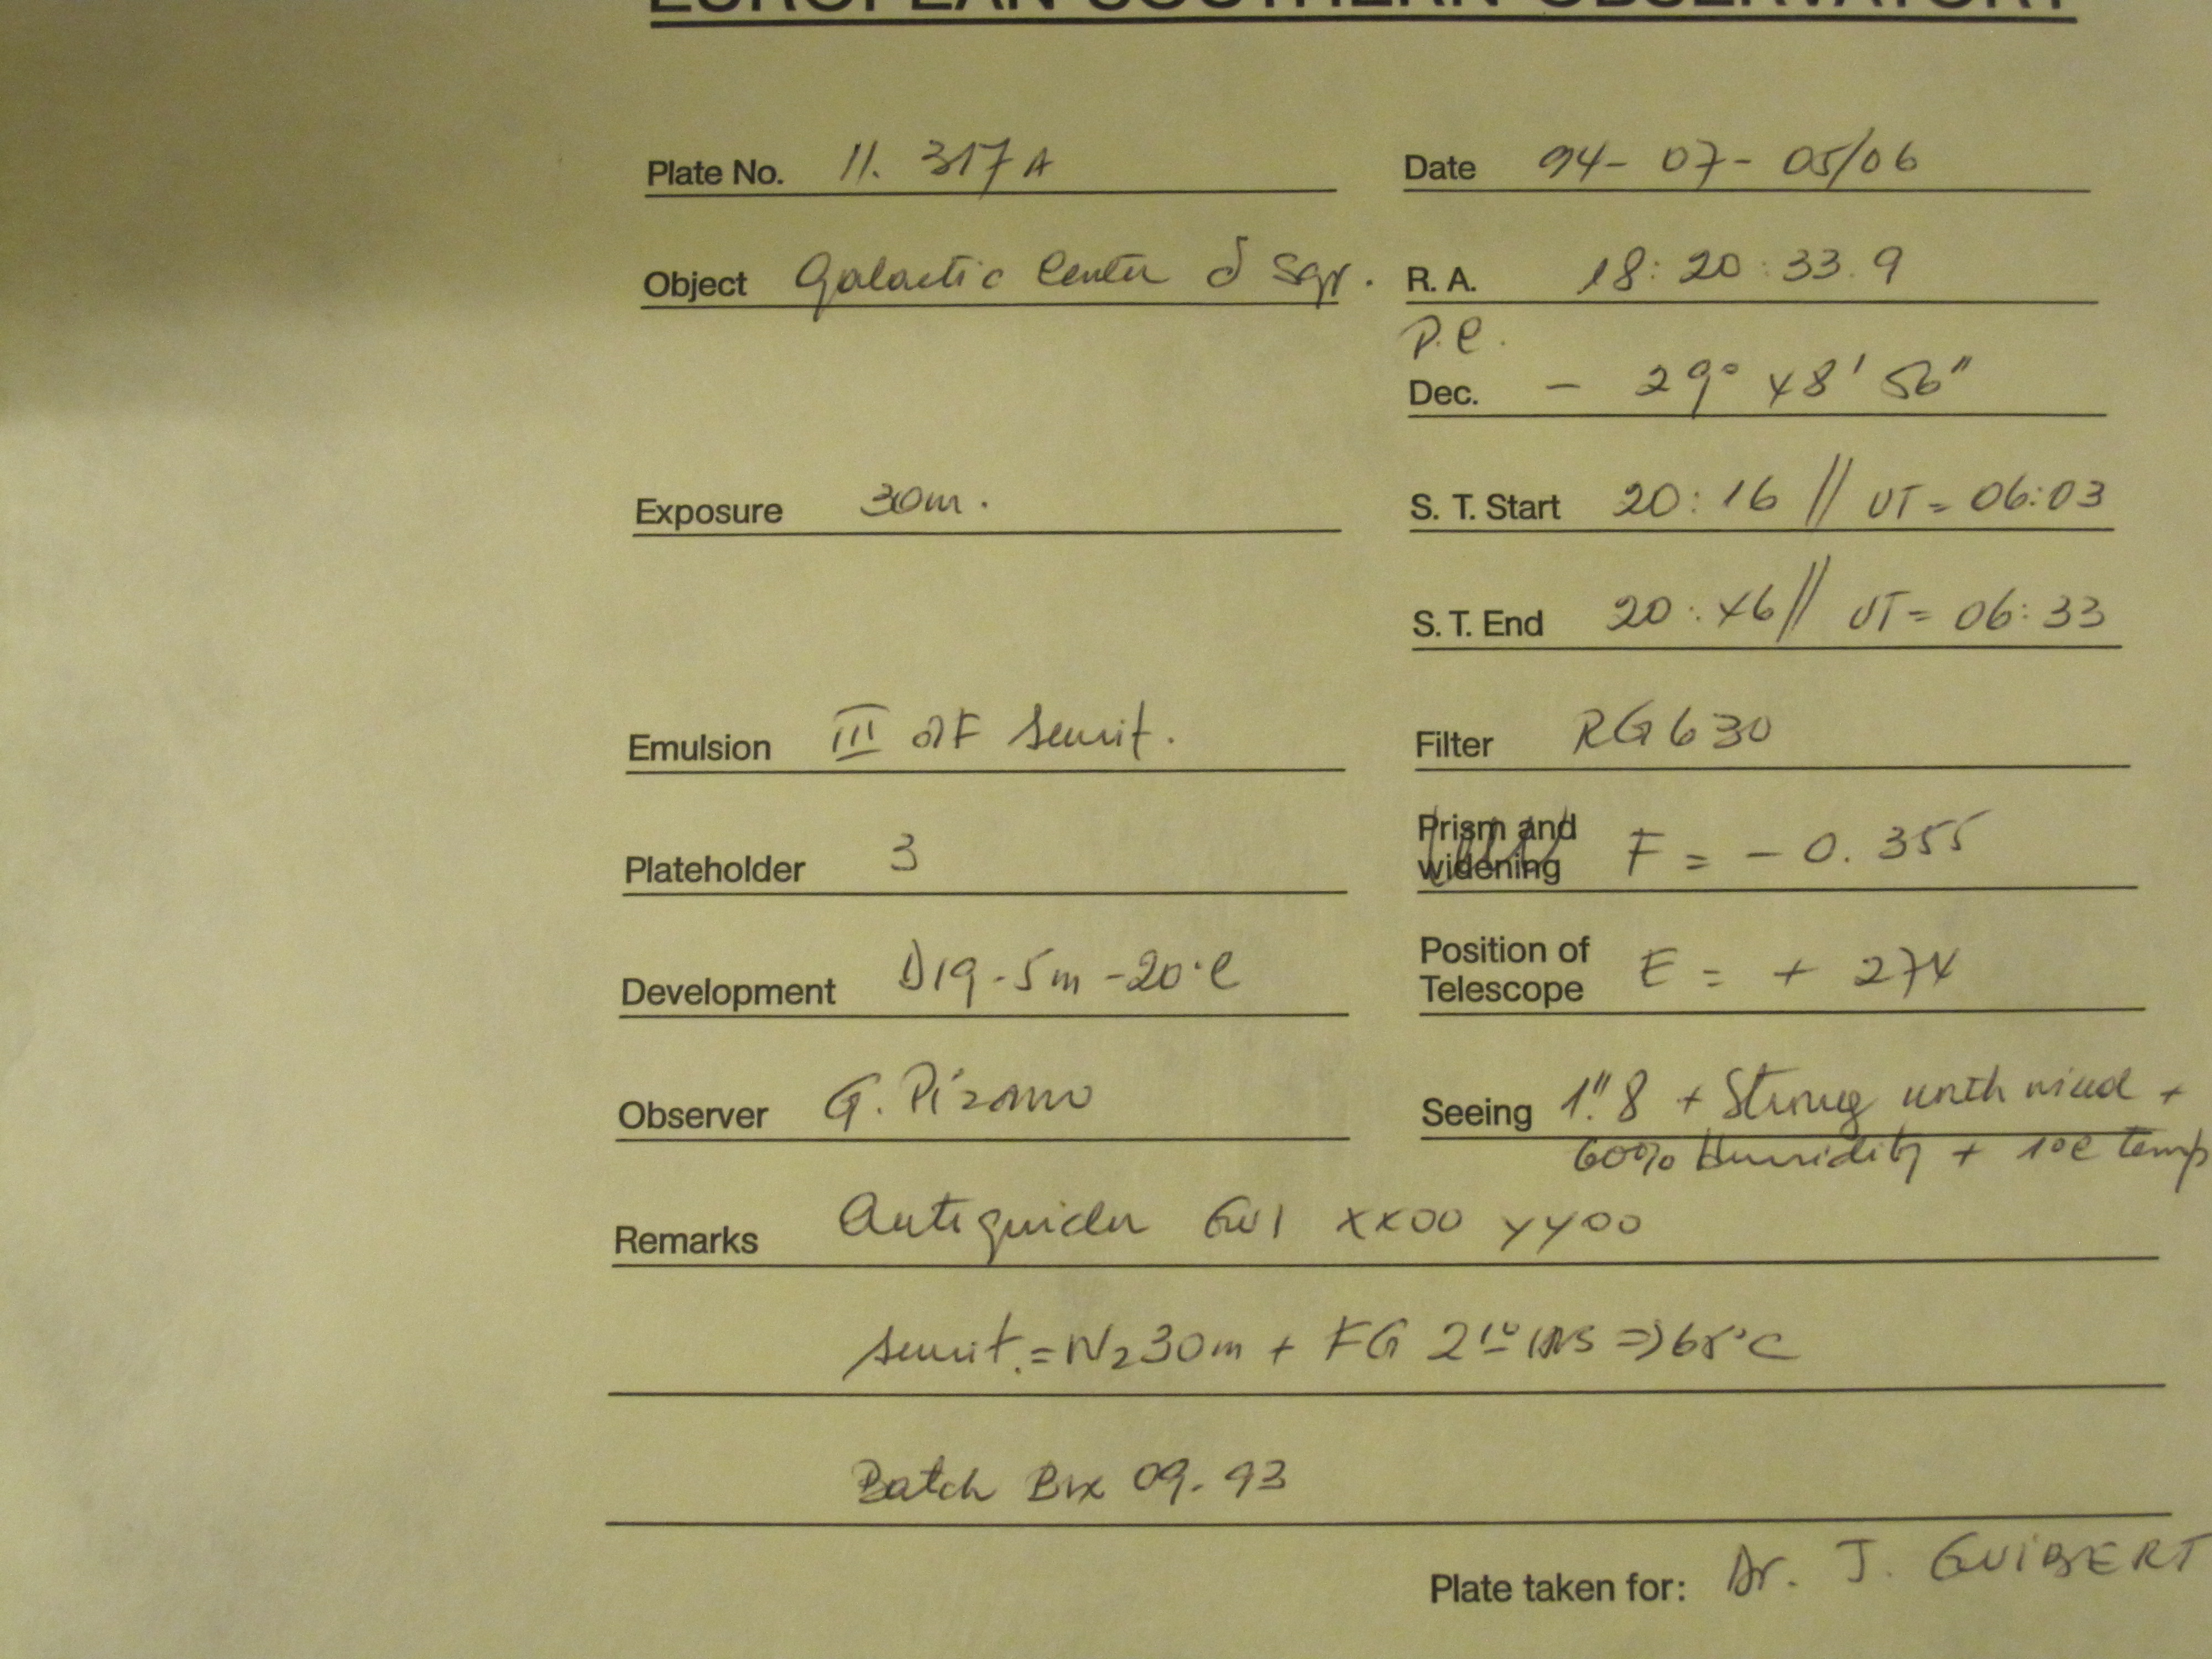 EUROPEAN SOUTHERN OBSERVATORY
Plate No. 11. 317 A
Date 94- 07- 05/06
Object Galactic Center δ Sgr.
R. A. 18: 20: 33. 9
P.C.
Dec. - 29° 48' 56"
Exposure 30m.
S. T. Start 20: 16 // UT= 06:03
S. T. End 20: 46 // UT= 06:33
Emulsion III aF Sensit.
Filter RG 630
Prism and
widening F = - 0. 355
Plateholder 3
Development D19-5m-20°C
Position of
Telescope E = + 274
Observer G. Pizarro
Seeing 1".8 + Strong north wind +
60% Humidity + 10C temp
Remarks Autoguider GW1 XX00 YY00
Sensit.=N2 30m + FG 2 =>65°C
Batch Box 09-93
Plate taken for: Dr. J. GUIBERT